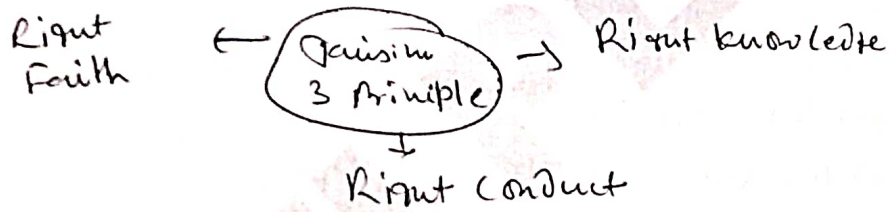 Right
Faith
Jainism
3 Priniple
Right knowledge
Right Conduct